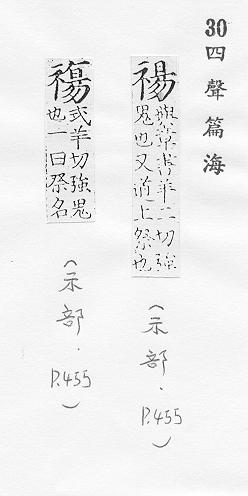 30
四聲篇海
禓
與常書羊二切強
鬼也又道上祭也
(示部．P.455)
式羊切強鬼
也一曰祭名
(示部．P.455)